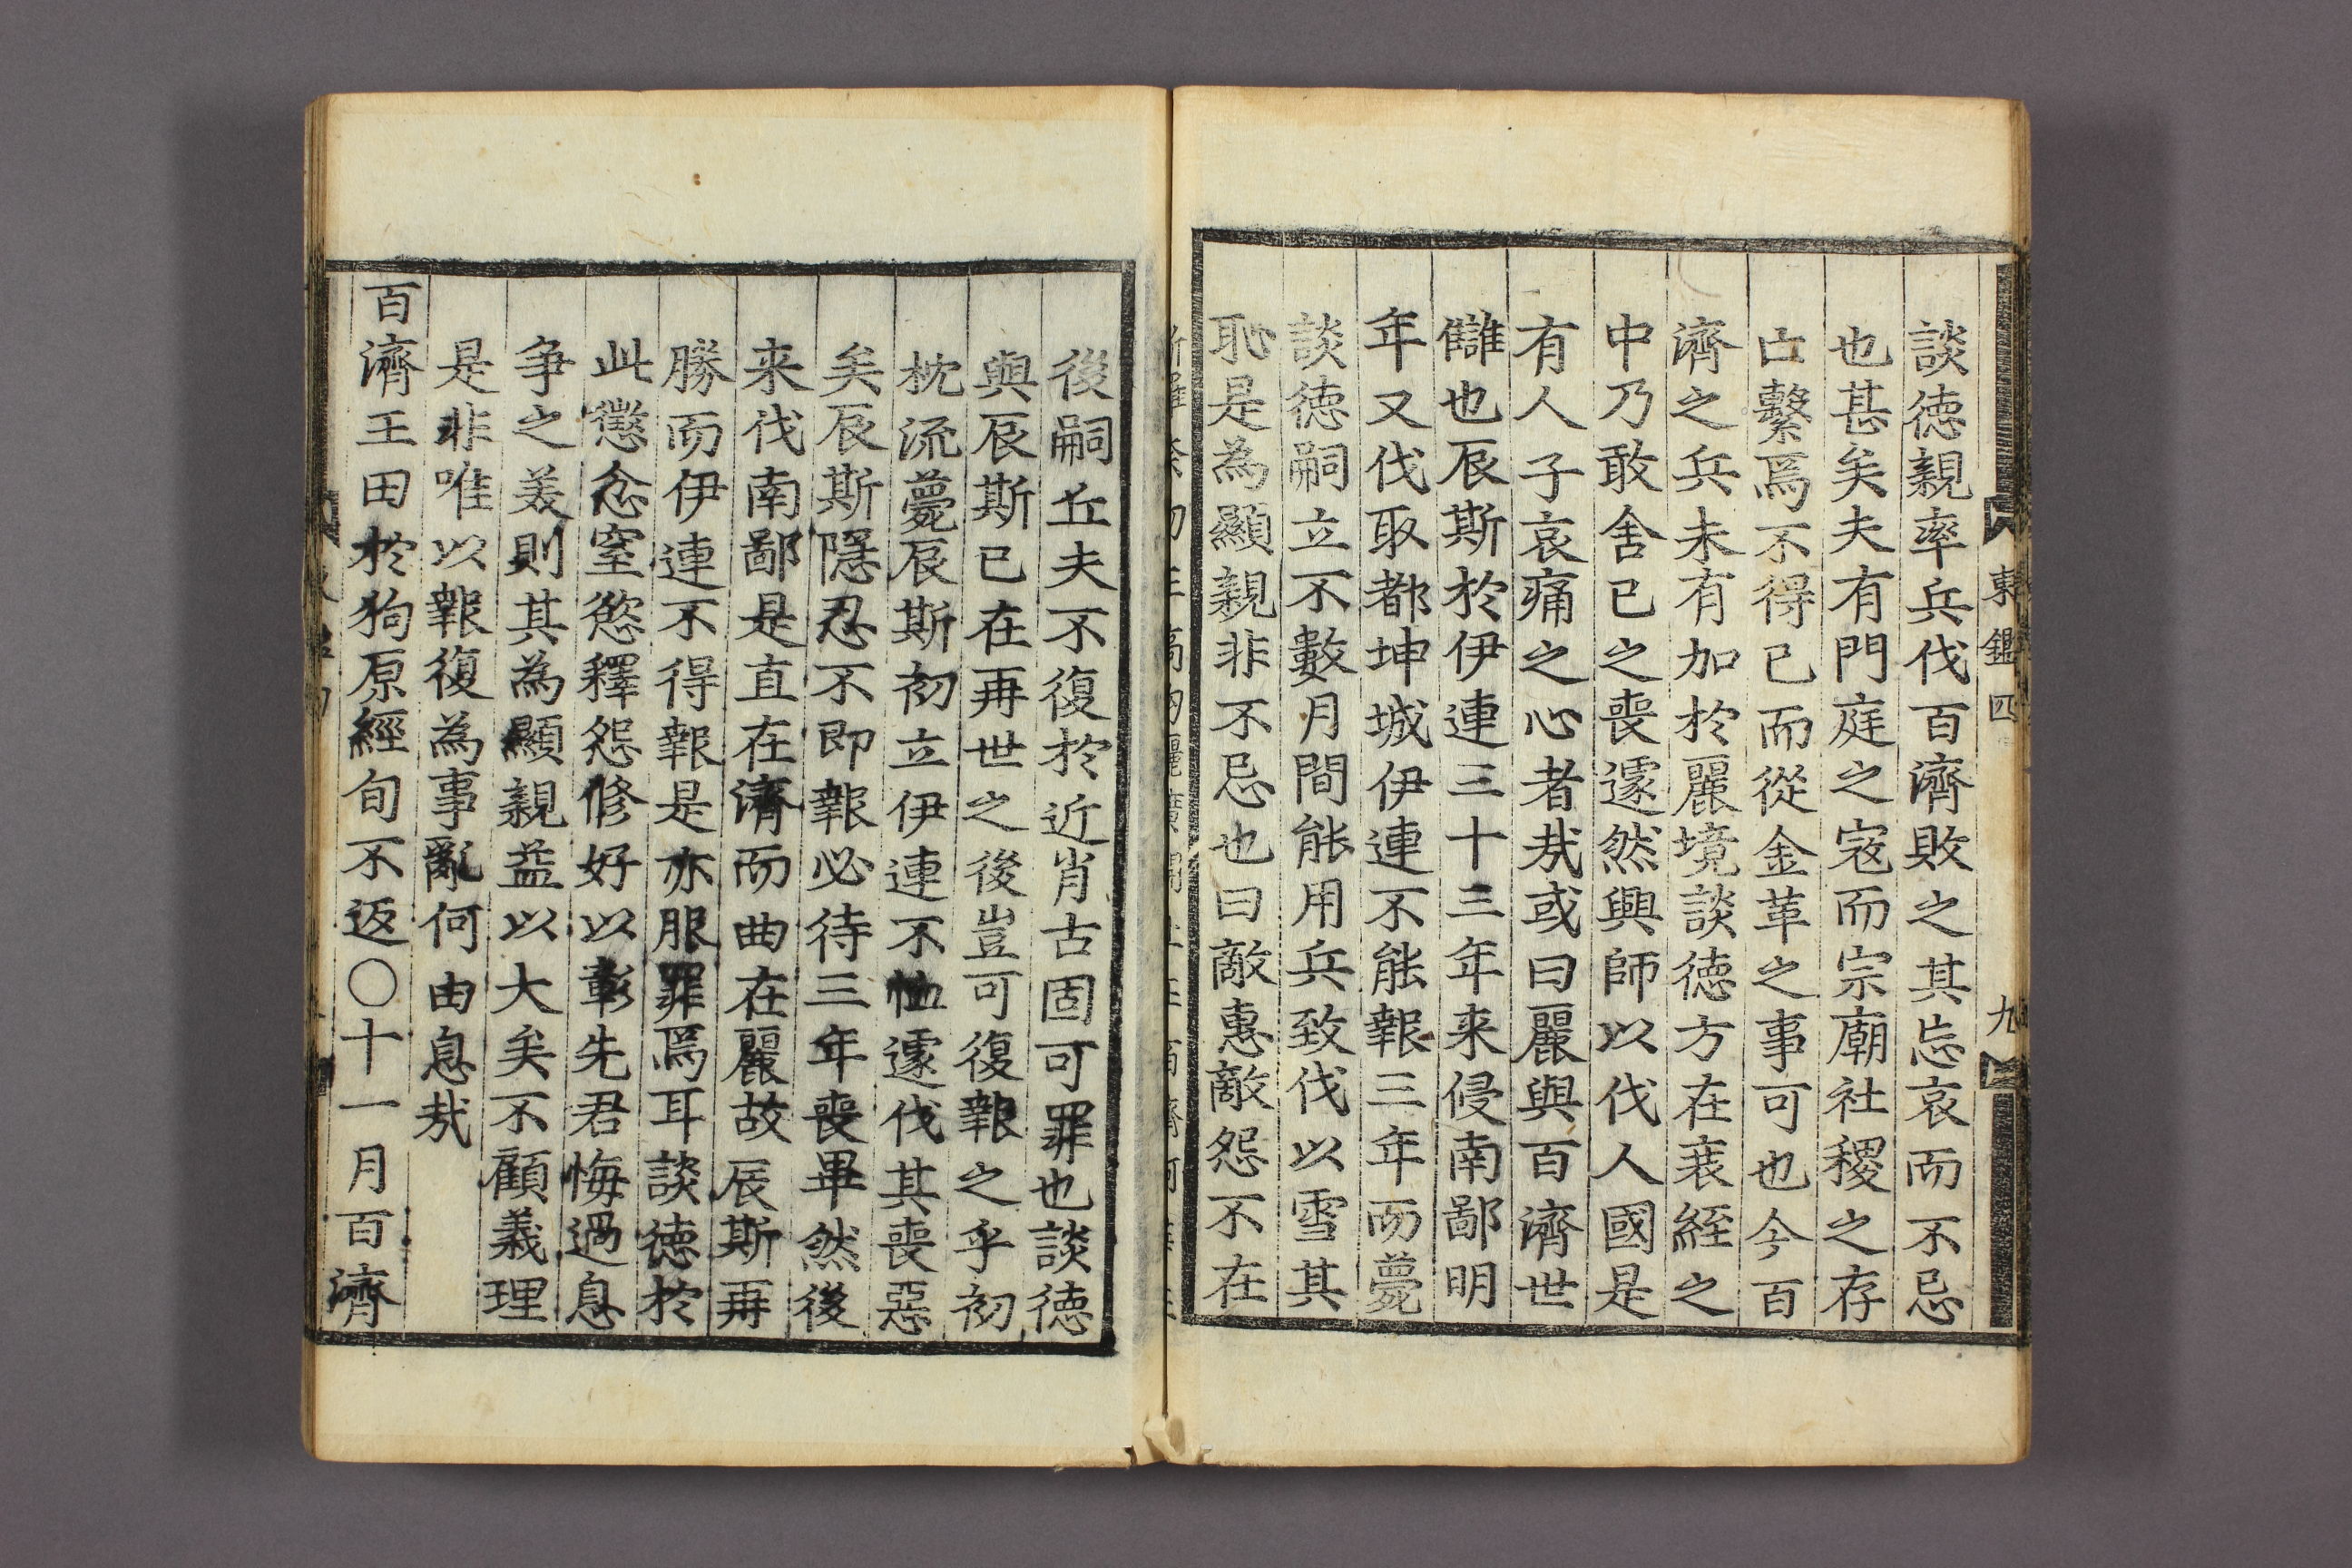 東鑑四
九
談徳親率兵伐百濟敗之其忘哀而不忌
也甚矣夫有門庭之寇而宗廟社稷之存
亡繫焉不得已而從金革之事可也今百
濟之兵未有加於麗境談徳方在衰絰之
中乃敢舍已之喪遽然興師以伐人國是
有人子哀痛之心者㦲或曰麗與百濟世
讎也辰斯於伊連三十三年来侵南鄙明
年又伐取都坤城伊連不能報三年而薨
談徳嗣立不數月間能用兵致伐以雪其
恥是為顯親非不忌也曰敵惠敵怨不在
後嗣丘夫不復於近肖古固可罪也談徳
與辰斯已在再世之後豈可復報之乎初
枕流薨辰斯初立伊連不恤遽伐其喪惡
矣辰斯隱忍不即報必待三年喪畢然後
来伐南鄙是直在濟而曲在麗故辰斯再
勝而伊連不得報是亦服罪焉耳談徳於
此懲忿窒慾釋怨修好以彰先君悔過息
争之美則其為顯親益以大矣不顧義理
是非唯以報復為事亂何由息㦲
百濟王田於狗原經旬不返〇十一月百濟